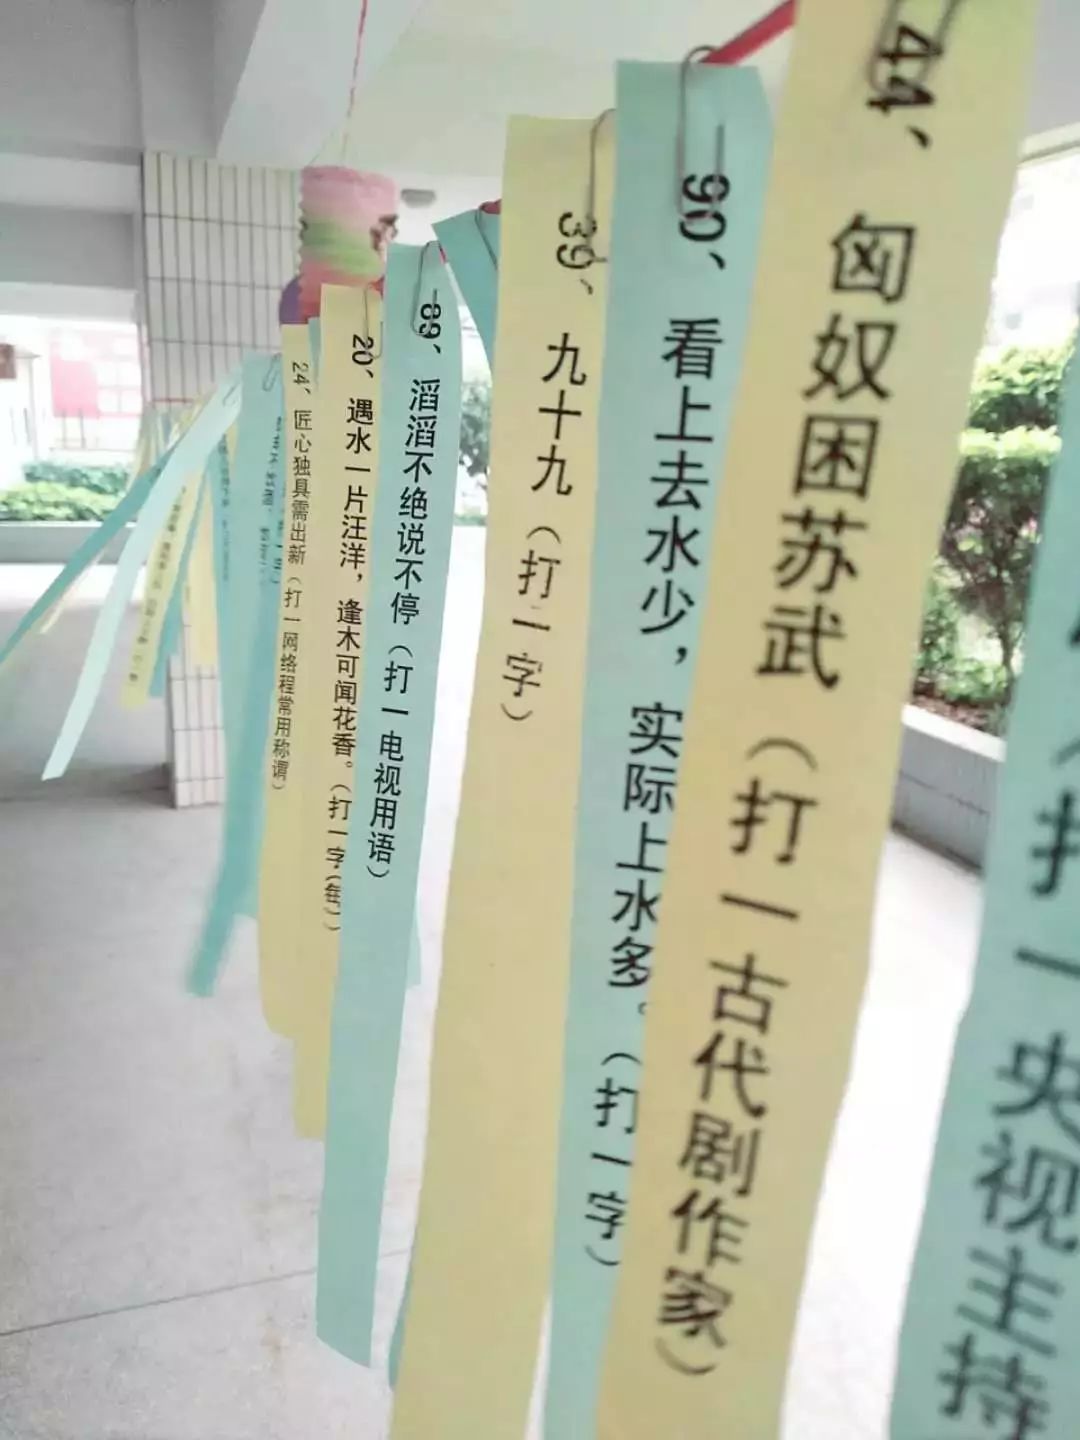 44、匈奴困苏武（打一古代剧作家）
90、看上去水少，实际上水多。（打一字）
39、九十九（打一字）
89、滔滔不绝说不停（打一电视用语）
20、遇水一片汪洋，逢木可闻花香。（打一字(每)）
24、匠心独具需出新（打一网络程常用称谓）
（打一央视主持